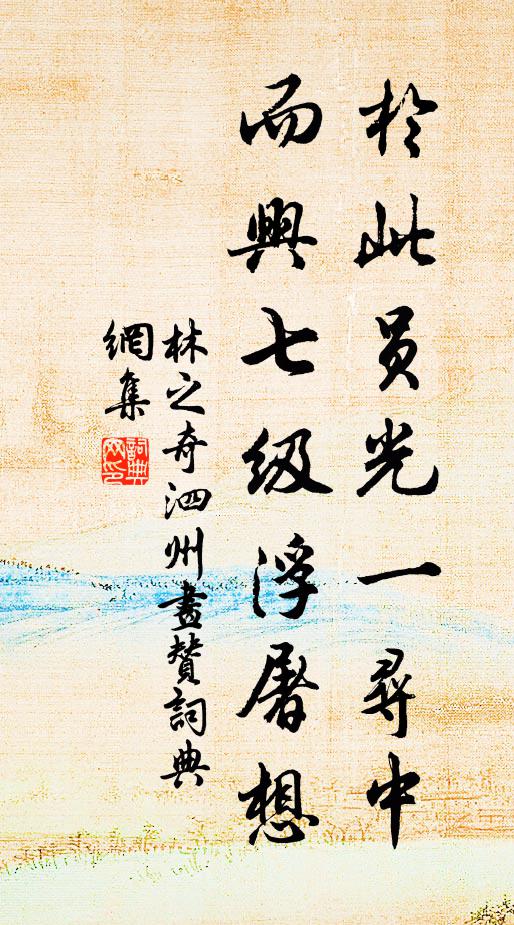 於此員光一尋中
而興七級浮屠想
林之奇泗州畫贊詞典
網集
詞典
网印